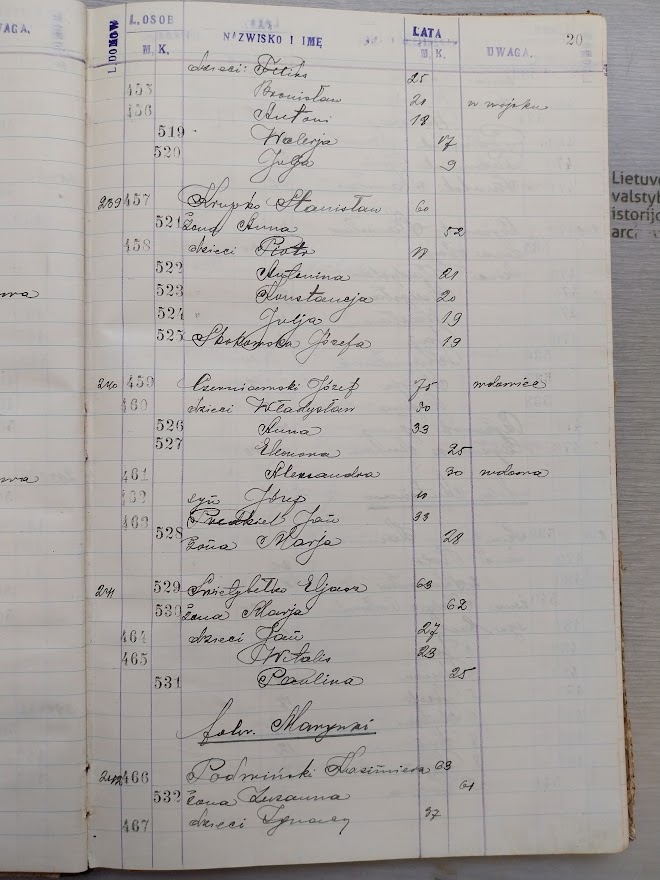 WAGA.
L. DOMÓW L. OSOB NAZWISKO I IMĘ LATA UWAGA. 20
M. K. M. K.
dzieci: Feliks 25
455 Bronisław 21 w wojsku
456 Antoni 18
519 Walerja 17
520 Julja 9
239 457 Krupko Stanisław 60
521 żona Anna 52
458 dzieci Piotr
522 Antonina 21
523 Konstancja 20
524 Julja 19
525 Józefa 19
240 459 Józef 75 wdowiec
460 dzieci Władysław 30
526 Anna 33
527 Eleonora 25
461 Aleksandra 30 wdowa
462 syn Józef
463 Jan 33
528 żona Marja 28
241 529 Eljasz 63
530 żona Marja 62
464 dzieci Jan 27
465 Witalis 23
531 Paulina 25
folw.
242 466 Podwiński Kazimierz 63
532 żona Zuzanna 61
467 dzieci Ignacy 37
Lietuvo
valstyb
istorijo
arc